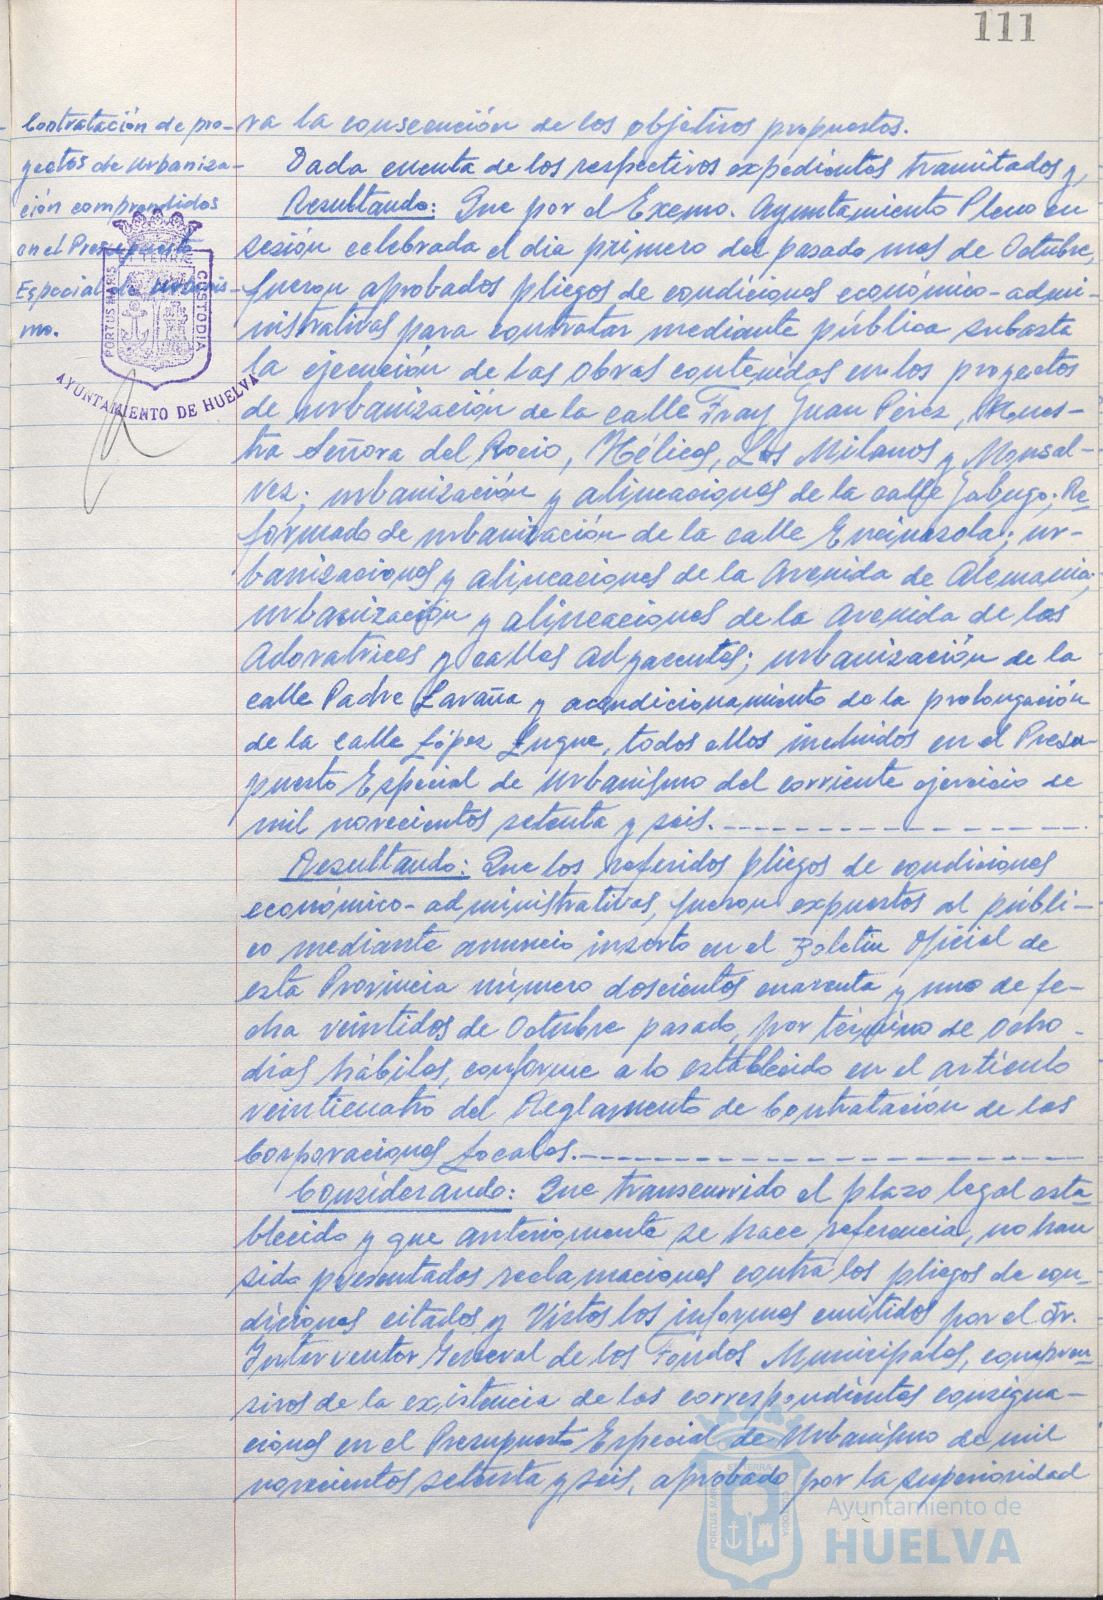 111
Contratación de pro-
yectos de urbaniza-
ción comprendidos
en el Presupuesto
Especial de Urbanis-
mo.
PORTUS MARIS
ET TERRE
CUSTODIA
AYUNTAMIENTO DE HUELVA
ra la consecución de los objetivos propuestos.
Dada cuenta de los respectivos expedientes tramitados y,
Resultando: Que por el Excmo. Ayuntamiento Pleno en
sesión celebrada el dia primero del pasado mes de Octubre,
fueron aprobados pliegos de condiciones económico-admi-
nistrativas para contratar mediante pública subasta
la ejecución de las obras contenidas en los proyectos
de urbanización de la calle Fray Juan Pérez, Nues-
tra Señora del Rocio, Hélices, Los Milanos y Monsal-
vez; urbanización y alineaciones de la calle Jabugo; Re-
formado de urbanización de la calle Encinasola; ur-
banizaciones y alineaciones de la Avenida de Alemania;
urbanización y alineaciones de la Avenida de las
Adoratrices y calles adyacentes; urbanización de la
calle Padre Laraña y acondicionamiento de la prolongación
de la calle López Luque, todos ellos incluidos en el Presu-
puesto Especial de Urbanismo del corriente ejercicio de
mil novecientos setenta y seis.
Resultando: Que los referidos pliegos de condiciones
económico-administrativas, fueron expuestos al públi-
co mediante anuncio inserto en el Boletin Oficial de
esta Provincia número doscientos cuarenta y uno de fe-
cha veintidos de Octubre pasado, por término de ocho
dias hábiles, conforme a lo establecido en el articulo
veinticuatro del Reglamento de Contratación de las
Corporaciones Locales.
Considerando: Que transcurrido el plazo legal esta-
blecido y que anteriormente se hace referencia, no han
sido presentados reclamaciones contra los pliegos de con-
diciones citados y Vistos los informes emitidos por el Sr.
Interventor General de los Fondos Municipales, compren-
sivos de la existencia de las correspondientes consigna-
ciones en el Presupuesto Especial de Urbanismo de mil
novecientos setenta y seis, aprobado por la superioridad
PORTUS MARIS
ET TERRA
CUSTODIA
Ayuntamiento de
HUELVA